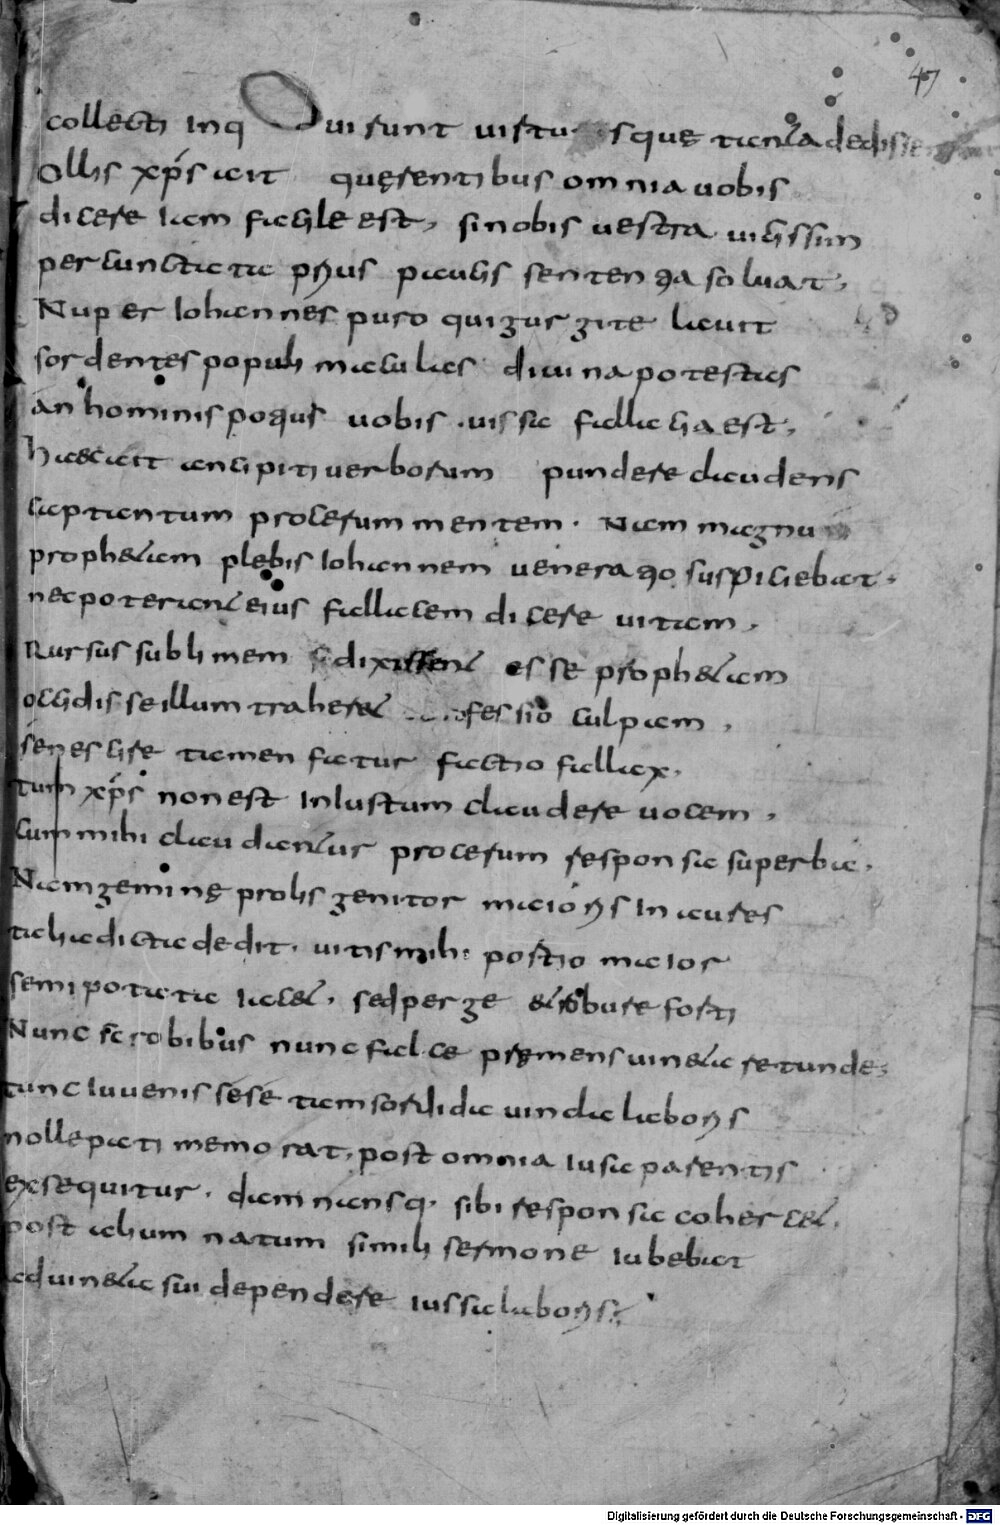 47
collecti inq Qui sunt uirtu squę tanta dedissent
Ollis xps ait quęrentibus omnia uobis
dicere iam facile est, si nobis uestra uicissim
percunctata prius paucis sententia soluat,
Nuper iohannes puro qui gurgite lauit
sordentes populi maculas diuina potestas
an hominis potius uobis uissa fallacia est,
haec ait ancipiti uerborum pundere claudens
captantum procerum mentem. Nam magnu
prophetam plebis iohannem ueneratio suspiciebat.
nec poterant eius fallacem dicere uitam,
Rursus sublimem si dixissent esse prophetam
occidisse illum traheret professio culpam,
senescire tamen fatur factio fallax,
tum xps non est iniustum claudere uocem,
Cum mihi claudantur procerum responsa superba,
Nam geminę prolis genitor maioris in aures
talia dicta dedit. uitis mihi portio maior
semipotata iacet, sed perge et robure forti
Nunc scrobibus nunc falce premens uineta retunde,
tunc iuuenis sese tam sordida uincla laboris
nolle pati memorat, post omnia iusa parentis
exsequitur. damnansq. sibi responsa cohercet,
post alium natum simili sermone iubebat
ad uineta sui dependere iussa laboris,
Digitalisierung gefördert durch die Deutsche Forschungsgemeinschaft - DFG